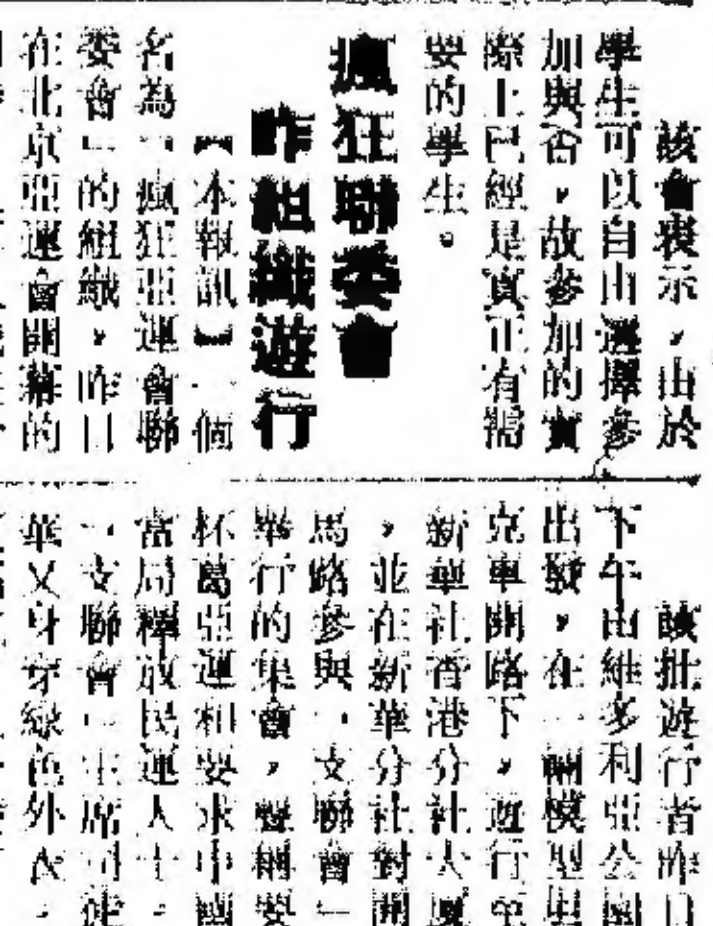 該會表示，由於
學生可以自由選擇參
加與否，故參加的實
際上已經是真正有需
要的學生。
瘋狂聯委會
昨組織遊行
【本報訊】一個
名為「瘋狂亞運會聯
委會」的組織，昨日
在北京亞運會開幕的
該批遊行者昨日
下午由維多利亞公園
出發，在一輛模型坦
克車開路下，遊行至
新華社香港分社大廈
，並在新華分社對開
馬路參與「支聯會」
舉行的集會，聲稱要
杯葛亞運和要求中國
當局釋放民運人士。
「支聯會」主席司徒
華又身穿綠色外衣，